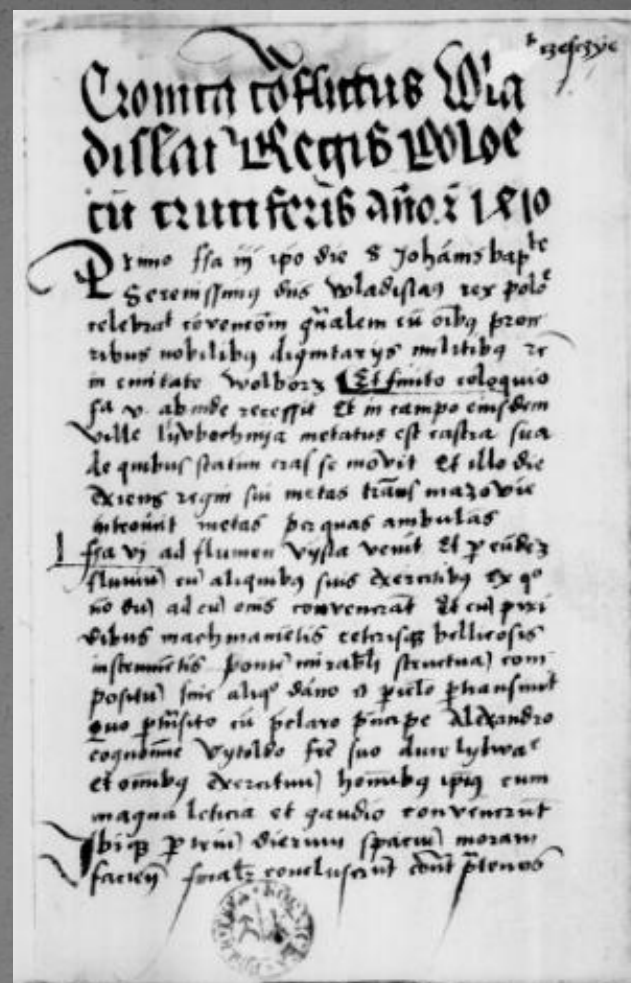 Cronica cōflictus Wla
dislai Regis Poloe
cū cruciferis año. 1410
Primo ffa iij ipo die S Johānis bapte
Serenissimus dns Wladislaus rex polo
celebrat cōvencōm gñalem cū oībus proce
ribus nobilibus dignitarijs militibus
in civitate wolborz Et finito coloquio
fa v. abinde recessit Et in campo eiusdem
ville lyvbochnija metatus est castra sua
de quibus statim cras se movit Et illo die
exiens regni sui metas mazovie
intravit metas per quas ambulās
ffa vj ad flumen vysla venit Et
fluviū cū aliquibus suis exercitibus
ad cū convenerāt Et cū pixi
dibus machinamētis ceterisque bellicosis
instrumētis ponte mirabli structura com
positū sine aliquo dāno pertransivit
quo cū principe Alexandro
Vytoldo suo duce lytwa
et omibus exercituū hominibus cum
magna leticia et gaudio convenerūt
Ibique dierum spaciū moram
facien concluserūt